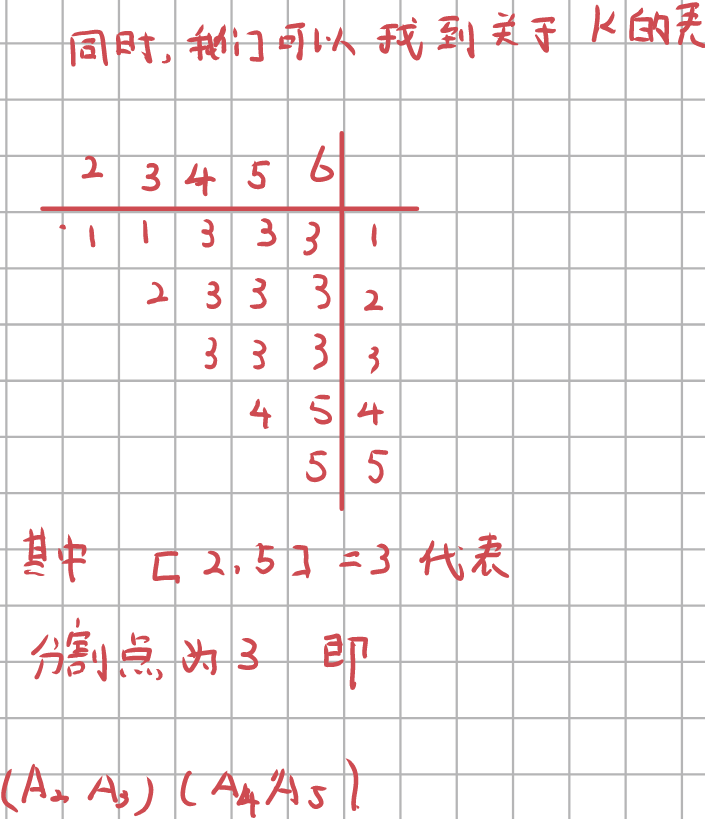 同时,我们可以找到关于 K的表
2 3 4 5 6
1 1 3 3 3 1
2 3 3 3 2
3 3 3 3
4 5 4
5 5
其中 [2.5]=3 代表
分割点为3 即
(A₂ A₃) (A₄ A₅)